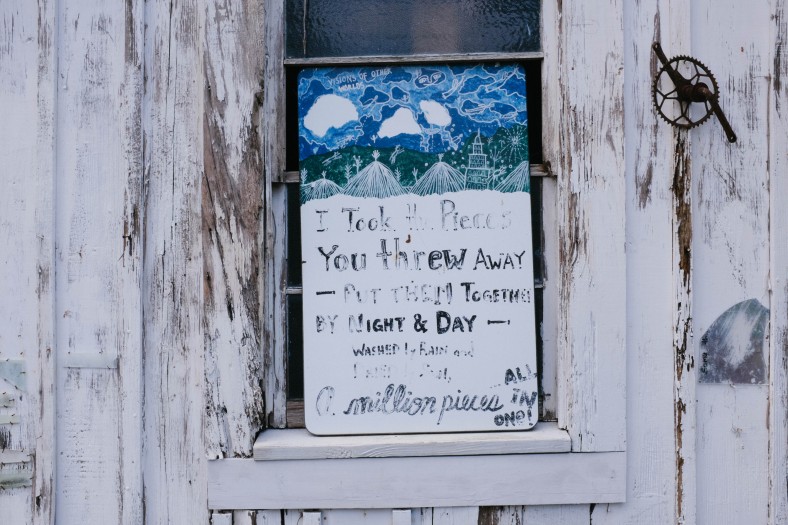 VISIONS OF OTHER
WORLDS
I Took the Pieces
You threw AWAY
— PUT THEM TOGETHER
BY NIGHT & DAY —
WASHED by RAIN and
A million pieces
ALL
IN
ONE!